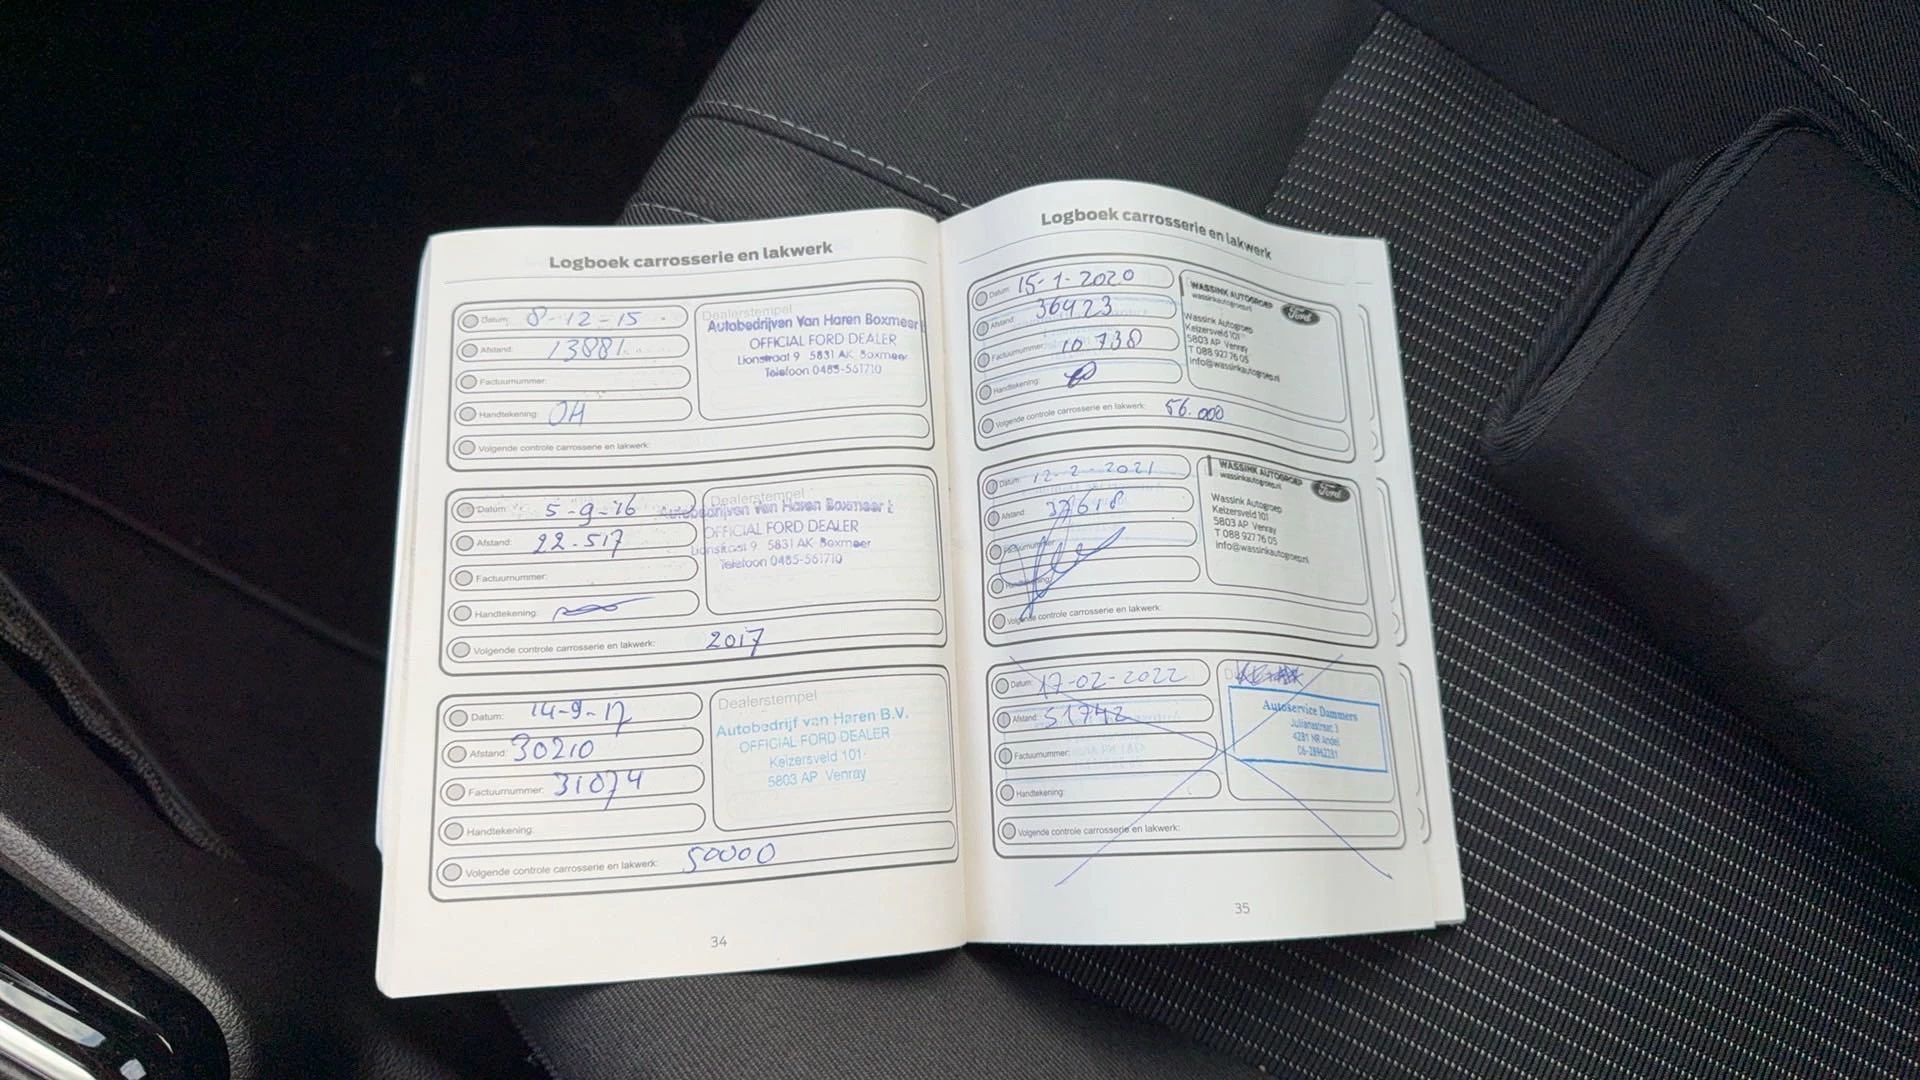 Logboek carrosserie en lakwerk
Datum: 8-12-15
Afstand: 13881
Factuurnummer:
Handtekening: OH
Volgende controle carrosserie en lakwerk:
Dealerstempel
Autobedrijven Van Haren Boxmeer
OFFICIAL FORD DEALER
Lionstraat 9 5831 AK Boxmeer
Telefoon 0485-561710
Datum: 5-9-16
Afstand: 22-517
Factuurnummer:
Handtekening:
Volgende controle carrosserie en lakwerk: 2017
Dealerstempel
Autobedrijven Van Haren Boxmeer
OFFICIAL FORD DEALER
Lionstraat 9 5831 AK Boxmeer
Telefoon 0485-561710
Datum: 14-9-17
Afstand: 30210
Factuurnummer: 31074
Handtekening:
Volgende controle carrosserie en lakwerk: 50000
Dealerstempel
Autobedrijf van Haren B.V.
OFFICIAL FORD DEALER
Keizersveld 101
5803 AP Venray
34
Logboek carrosserie en lakwerk
Datum: 15-1-2020
Afstand: 36423
Factuurnummer: 10738
Handtekening:
Volgende controle carrosserie en lakwerk: 56.000
WASSINK AUTOGROEP
wassinkautogroep.nl
Ford
Wassink Autogroep
Keizersveld 101
5803 AP Venray
T 088 927 76 05
info@wassinkautogroep.nl
Datum: 12-2-2021
Afstand: 37618
Factuurnummer:
Handtekening:
Volgende controle carrosserie en lakwerk:
WASSINK AUTOGROEP
wassinkautogroep.nl
Ford
Wassink Autogroep
Keizersveld 101
5803 AP Venray
T 088 927 76 05
info@wassinkautogroep.nl
Datum: 17-02-2022
Afstand: 51742
Factuurnummer:
Handtekening:
Volgende controle carrosserie en lakwerk:
Autoservice Dammers
Julianastraat 3
4281 NR Andel
06-28962281
35